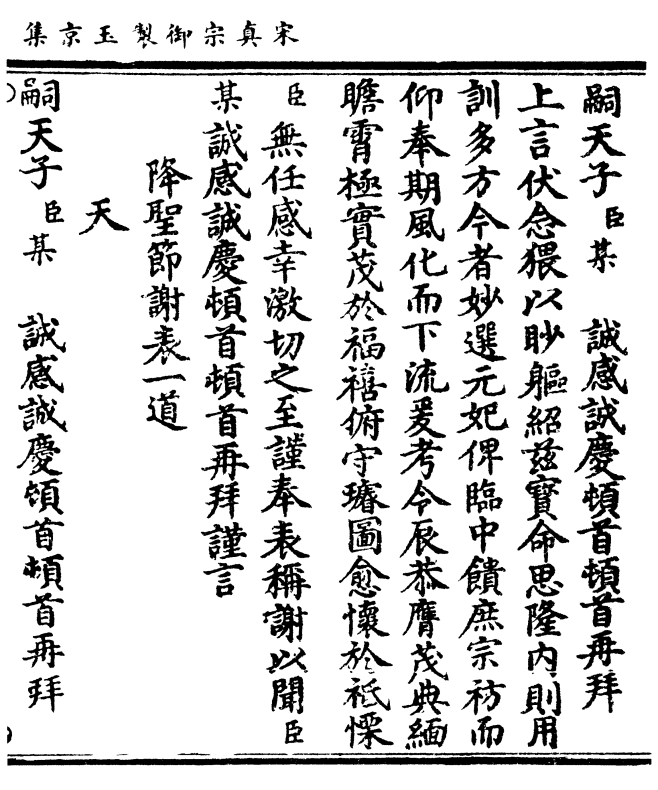 宋真宗御製玉京集
嗣天子臣某　誠感誠慶頓首頓首再拜
上言伏念猥以眇軀紹茲寳命思隆内則用
訓多方今者妙選元妃俾臨中饋庶宗祊而
仰奉期風化而下流爰考令辰恭膺茂典緬
瞻霄極實茂於福禧俯守璿圖愈懷於祗慄
臣無任感幸激切之至謹奉表稱謝以聞臣
某誠感誠慶頓首頓首再拜謹言
降聖節謝表一道
天
嗣天子臣某　誠感誠慶頓首頓首再拜